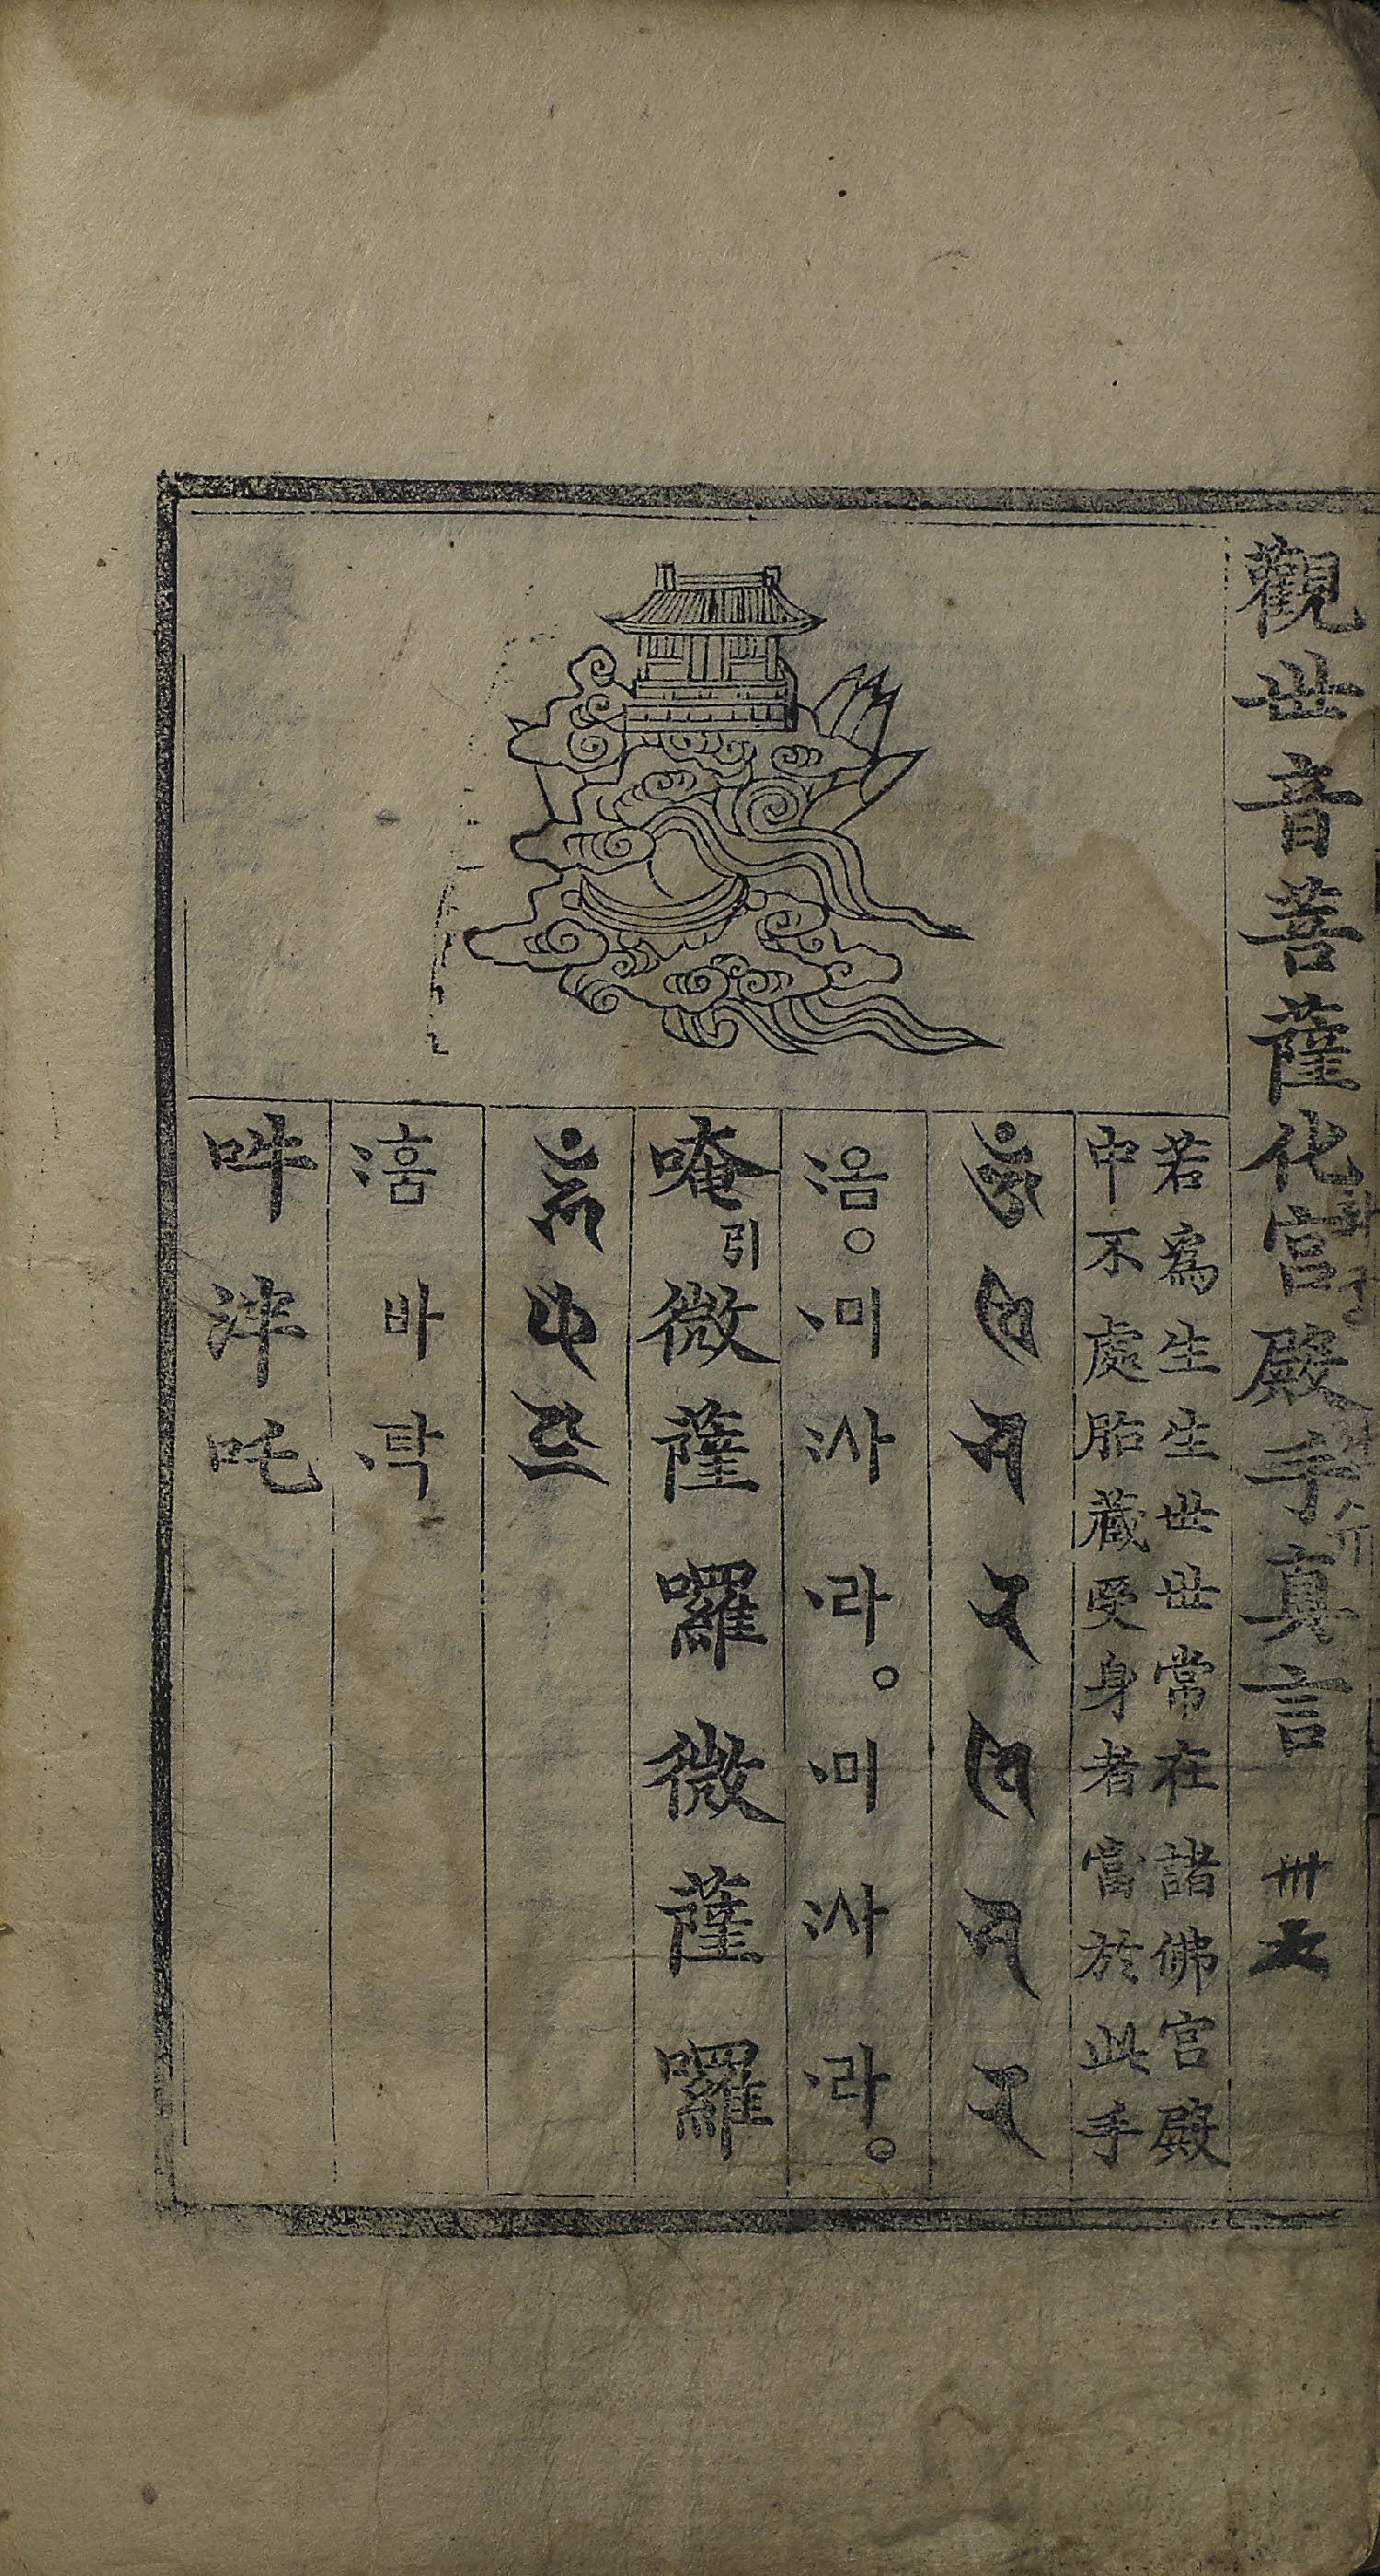 觀世音菩薩化宮殿手真言
若爲生生世世常在諸佛宮殿
中不處胎藏受身者當於此手
𑖌𑖼𑖪𑖰𑖭𑖨𑖪𑖰𑖭𑖨
옴〯。미〮사〯라〮。미〮사〯라〮。
唵引微薩囉微薩囉
𑖮𑖳𑖽𑖣𑖘𑖿
훔〯바탁〮
吽泮吒